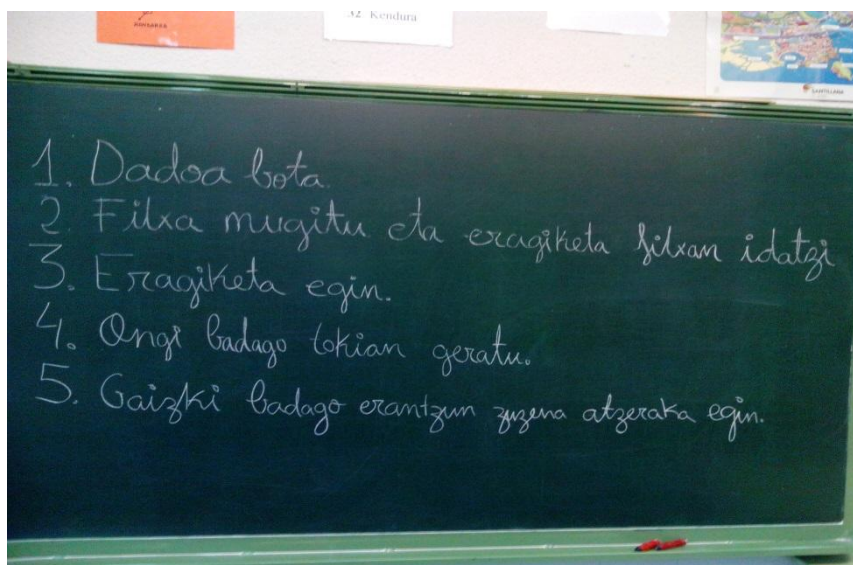 HANKAREA
32 Kendura
SANTILLANA
1. Dadoa bota.
2. Fitxa mugitu eta eragiketa fitxan idatzi
3. Eragiketa egin.
4. Ongi badago tokian geratu.
5. Gaizki badago erantzun zuzena atzeraka egin.